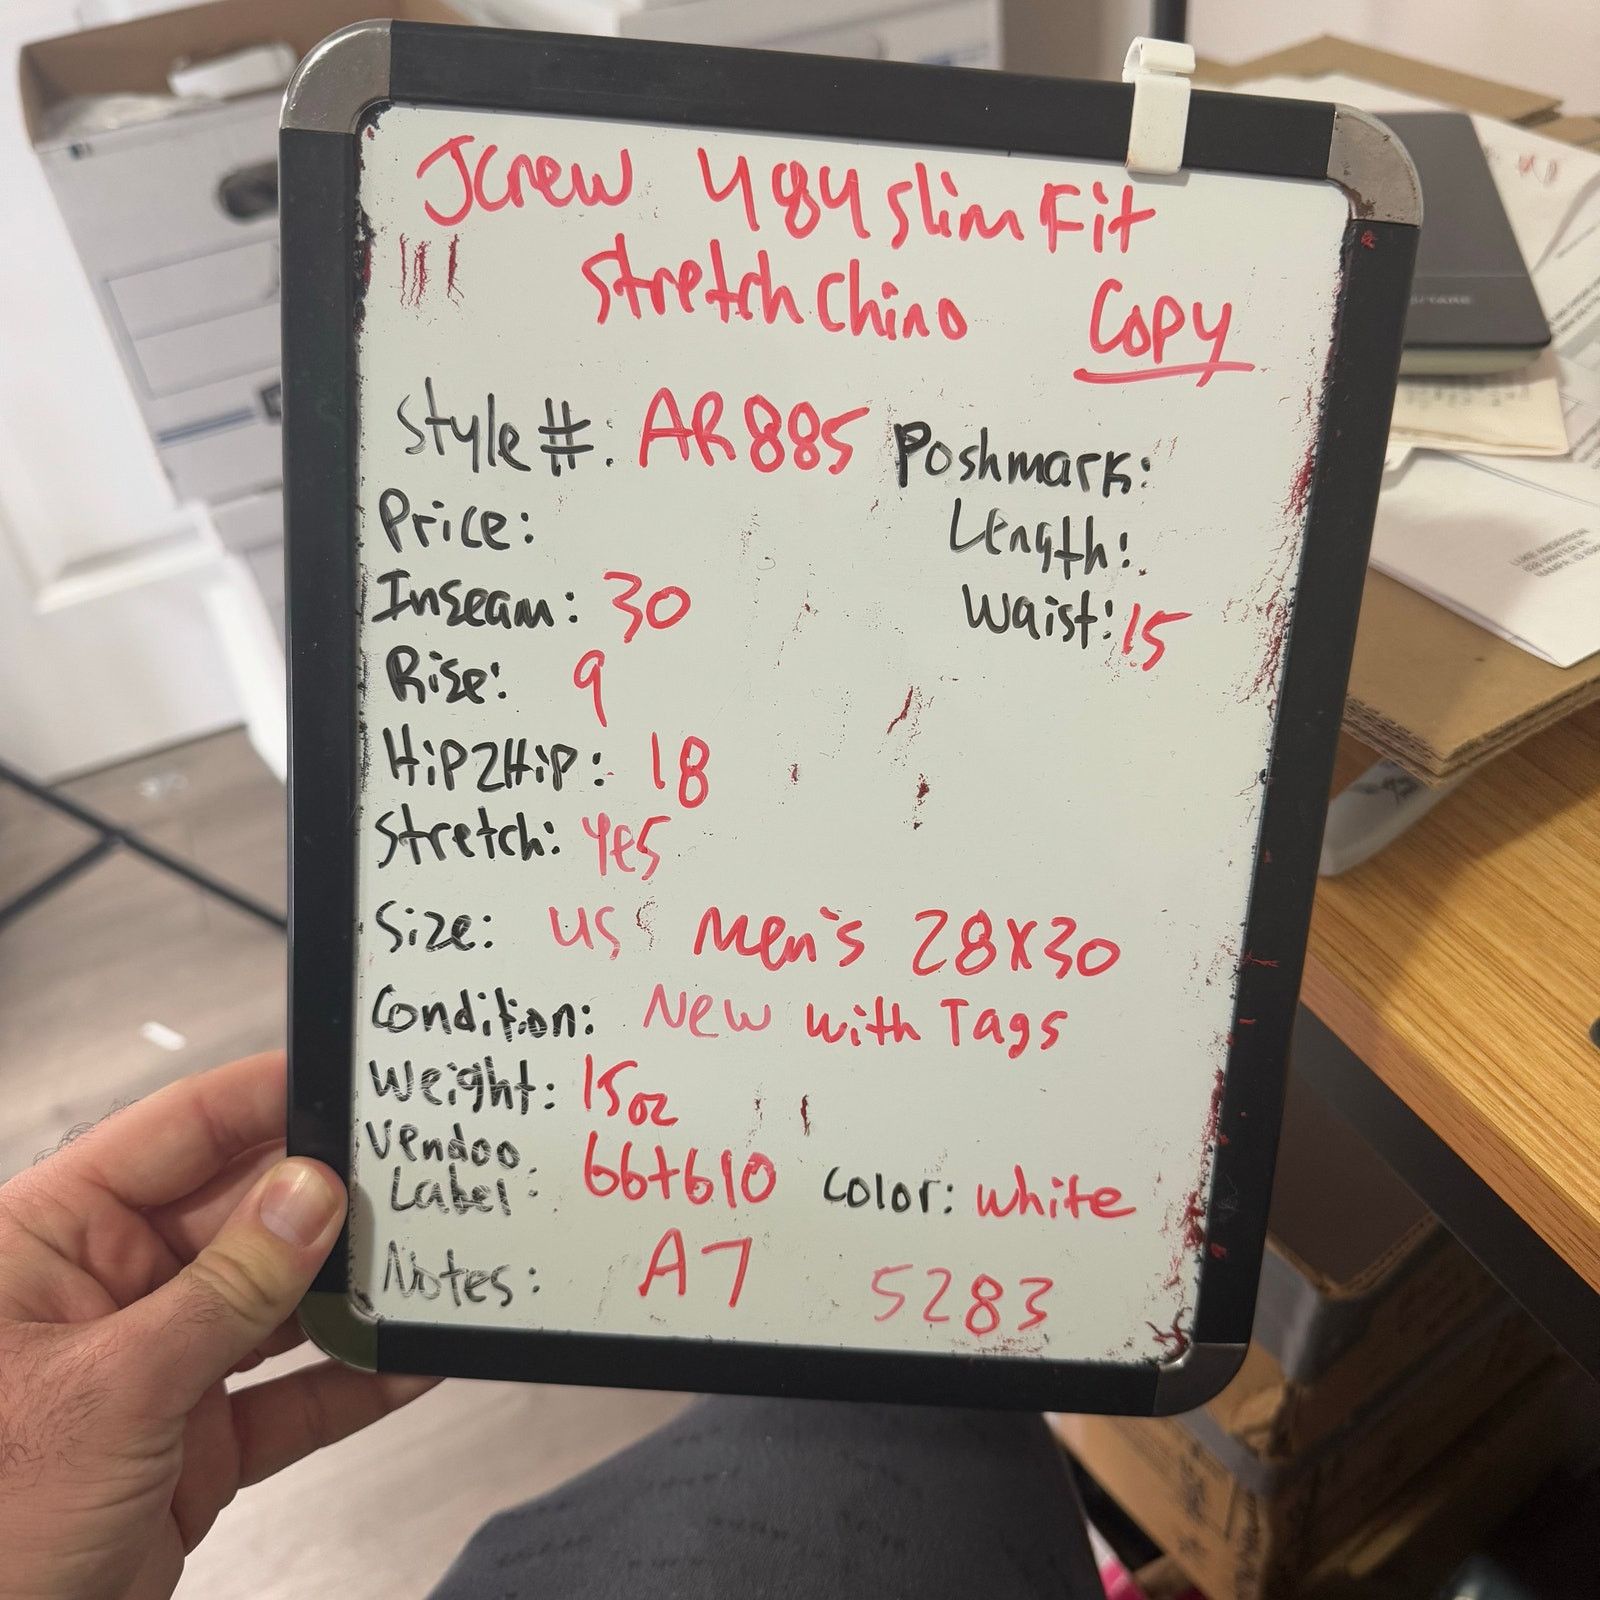 Jcrew 484 Slim Fit
Stretch Chino Copy
Style #: AR885 Poshmark:
Price: Length:
Inseam: 30 Waist: 15
Rise: 9
Hip2Hip: 18
Stretch: Yes
Size: US Men's 28X30
Condition: New with Tags
Weight: 15oz
Vendoo
Label: 66+610 Color: white
Notes: A7 5283